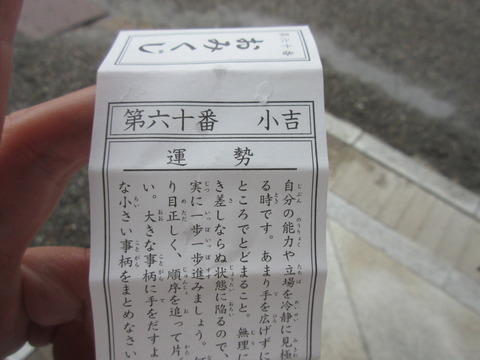 第六十番
おみくじ
第六十番 小吉
運勢
自分の能力や立場を冷静に見極
る時です。あまり手を広げずに
ところでとどまること。無理に
き差しならぬ状態に陥るので、
実に一歩一歩進みましょう。
り目正しく、順序を追って片
い。大きな事柄に手をだすよ
な小さい事柄をまとめなさい